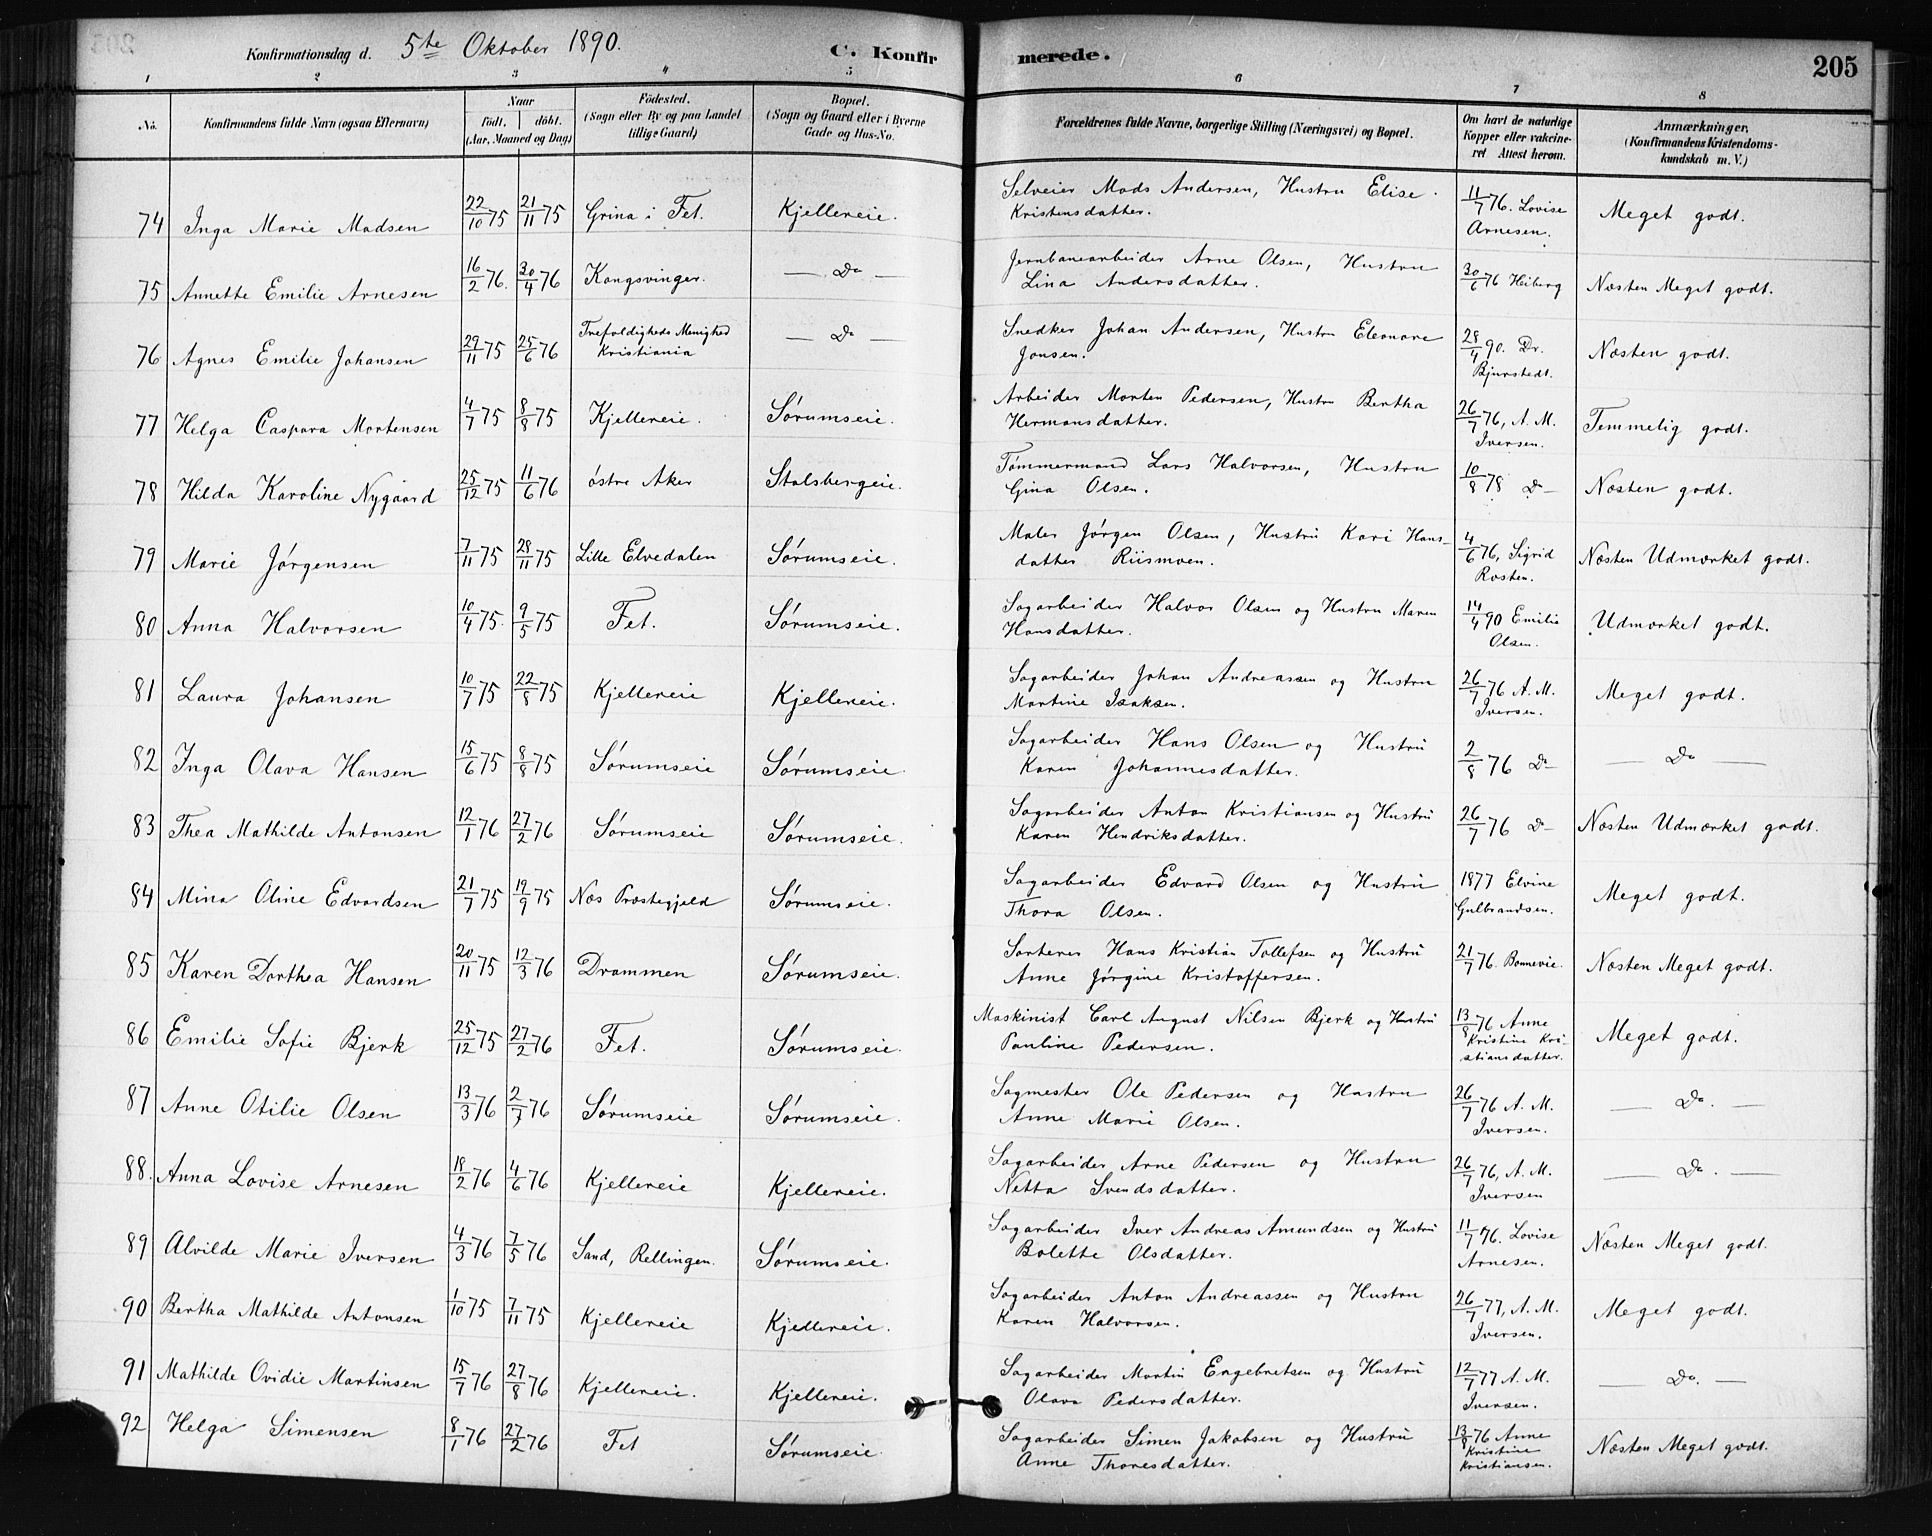 Konfirmationsdag d. 5te Oktober 1890. C. Konfirmerede. 205
1 2 3 4 5 6 7 8
No. | Konfirmandens fulde Navn (ogsaa Efternavn) | Naar født. døbt. (Aar, Maaned og Dag) | Fødested. (Sogn eller By og paa Landet tillige Gaard) | Bopæl. (Sogn og Gaard eller i Byerne Gade og Hus-No. | Forældrenes fulde Navne, borgerlige Stilling (Næringsvei) og Bopæl. | Om havt de naturlige Kopper eller vakcineret Attest herom. | Anmærkninger. (Konfirmandens Kristendomskundskab m. V.)
74 | Inga Marie Madsen | 22/10 75 | 21/11 75 | Grina i Fet. | Kjellereie. | Selveier Mads Andersen, Hustru Elise Kristensdatter. | 11/7 76. Lovise Arnesen. | Meget godt.
75 | Annette Emilie Arnesen | 16/2 76. | 30/4 76 | Kongsvinger. | — Do — | Jernbanearbeider Arne Olsen, Hustru Lina Andersdatter. | 30/6 76 Heiberg | Næsten Meget godt.
76 | Agnes Emilie Johansen | 29/11 75 | 25/6 76 | Trefoldigheds Menighed Kristiania | — Do — | Snedker Johan Andersen, Hustru Eleonore Jonsen. | 28/4 90. Dr. Bjurstedt. | Næsten godt.
77 | Helga Caspara Mortensen | 4/7 75 | 8/8 75 | Kjellereie. | Sørumseie. | Arbeider Morten Pedersen, Hustru Bertha Hermansdatter. | 26/7 76, A. M. Iversen. | Temmelig godt.
78 | Hilda Karoline Nygaard | 25/12 75 | 11/6 76 | østre Aker | Stalsbergeie. | Tømmermand Lars Halvorsen, Hustru Gina Olsen. | 10/8 78 Do | Næsten godt.
79 | Marie Jørgensen | 7/11 75 | 28/11 75 | Lille Elvedalen | Sørumseie. | Maler Jørgen Olsen, Hustru Kari Hansdatter Riismoen. | 4/6 76, Sigrid Rosten. | Næsten Udmærket godt.
80 | Anna Halvorsen | 10/4 75. | 9/5 75 | Fet. | Sørumseie. | Sagarbeider Halvor Olsen og Hustru Maren Hansdatter. | 14/4 90 Emilie Olsen. | Udmærket godt.
81 | Laura Johansen | 10/7 75 | 22/8 75 | Kjellereie | Kjellereie. | Sagarbeider Johan Andreassen og Hustru Martine Isaksen. | 26/7 76 A. M. Iversen. | Meget godt.
82 | Inga Olava Hansen | 15/6 75 | 8/8 75 | Sørumseie | Sørumseie. | Sagarbeider Hans Olsen og Hustru Karen Johannesdatter. | 2/8 76 Do | — Do —
83 | Thea Mathilde Antonsen | 12/1 76 | 27/2 76 | Sørumseie | Sørumseie. | Sagarbeider Anton Kristiansen og Hustru Karen Hendriksdatter. | 26/7 76 Do | Næsten Udmærket godt.
84 | Mina Oline Edvardsen | 21/7 75 | 19/9 75 | Næs Præstegjeld | Sørumseie. | Sagarbeider Edvard Olsen og Hustru Thora Olsen. | 1877 Elvine Gulbrandsen. | Meget godt.
85 | Karen Dorthea Hansen | 20/11 75 | 12/3 76 | Drammen | Sørumseie. | Sorterer Hans Kristian Tollefsen og Hustru Anne Jørgine Kristoffersen. | 21/7 76. Bonnevie. | Næsten Meget godt.
86 | Emilie Sofie Bjerk | 25/12 75 | 27/2 76 | Fet. | Sørumseie. | Maskinist Carl August Nilsen Bjerk og Hustru Pauline Pedersen. | 13/8 76 Anne Kristine Kristiansdatter. | Meget godt.
87 | Anne Otilie Olsen | 13/3 76 | 2/7 76 | Sørumseie | Sørumseie. | Sagmester Ole Pedersen og Hustru Anne Marie Olsen. | 26/7 76 A. M. Iversen. | — Do. —
88. | Anna Lovise Arnesen | 18/2 76 | 4/6 76 | Kjellereie | Kjellereie. | Sagarbeider Arne Pedersen og Hustru Netta Svendsdatter. | 26/7 76, A. M. Iversen | — Do. —
89 | Alvilde Marie Iversen | 4/3 76 | 7/5 76 | Sand, Rellingen. | Sørumseie. | Sagarbeider Iver Andreas Amundsen og Hustru Bolette Olsdatter. | 11/7 76. Lovise Arnesen. | Næsten Meget godt.
90 | Bertha Mathilde Antonsen | 1/10 75 | 7/11 75 | Kjellereie | Kjellereie. | Sagarbeider Anton Andreassen og Hustru Karen Halvorsen. | 26/7 77, A. M. Iversen. | Meget godt.
91 | Mathilde Ovidie Martinsen | 15/7 76 | 27/8 76 | Kjellereie. | Kjellereie. | Sagarbeider Martin Engebretsen og Hustru Olava Pedersdatter. | 12/7 77 A. M. Iversen. | — Do. —
92 | Helga Simensen | 8/1 76 | 27/2 76 | Fet | Sørumseie | Sagarbeider Simen Jakobsen og Hustru Anne Thoresdatter. | 13/8 76 Anne Kristine Kristiansen. | Næsten Meget godt.